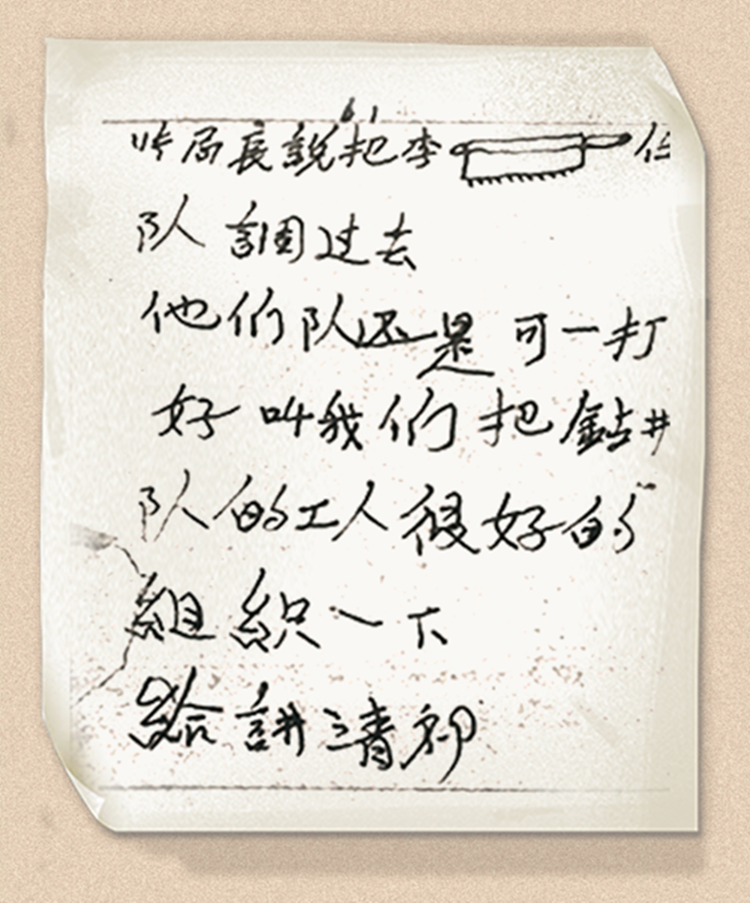 許局長說把李 伍
队調过去
他们队还是可一打
好叫我们把鉆井
队的工人很好的
組织一下
給讲清初